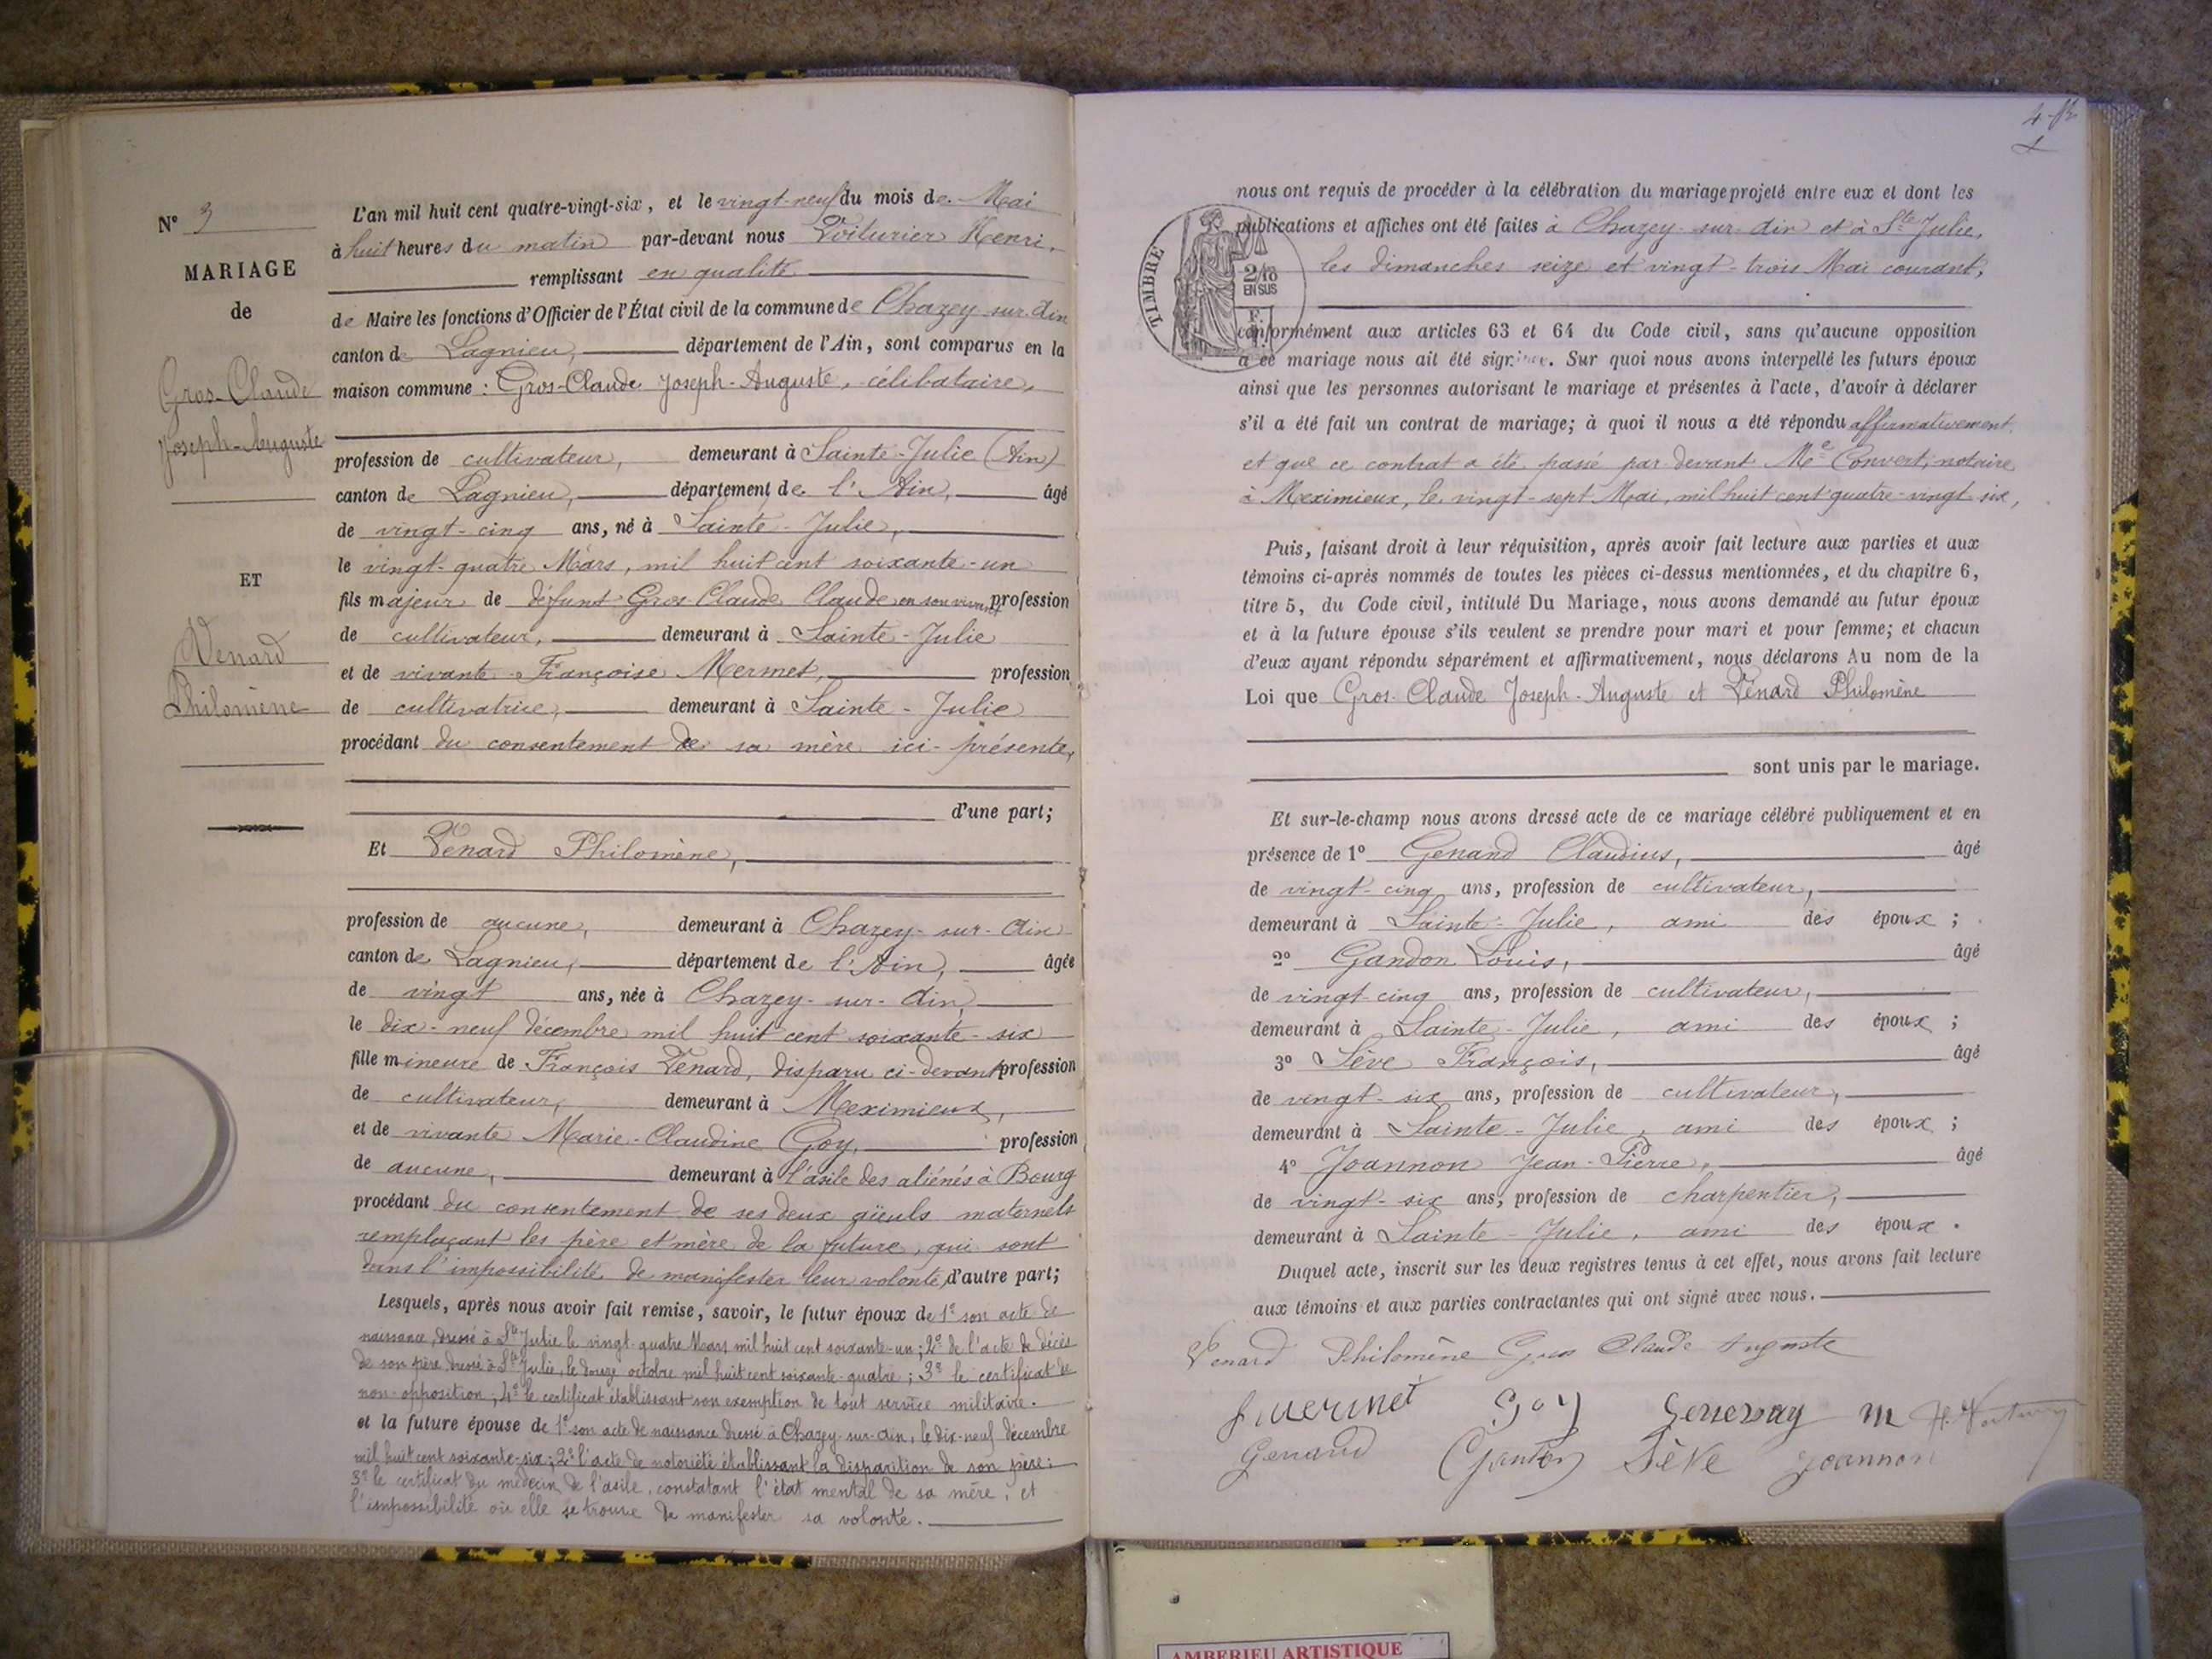 N° 3
MARIAGE
de
Gros-Claude
Joseph-Auguste
ET
Venard
Philomène
L'an mil huit cent quatre-vingt-six, et le vingt-neuf du mois de Mai
à huit heures du matin par-devant nous Voiturier Henri,
remplissant en qualité
de Maire les fonctions d'Officier de l'État civil de la commune de Chazey-sur-Ain
canton de Lagnieu, département de l'Ain, sont comparus en la
maison commune : Gros-Claude Joseph-Auguste, célibataire,
profession de cultivateur, demeurant à Sainte-Julie (Ain)
canton de Lagnieu, département de l'Ain, âgé
de vingt-cinq ans, né à Sainte-Julie,
le vingt-quatre Mars, mil huit cent soixante-un
fils majeur de défunt Gros-Claude Claude en son vivant profession
de cultivateur, demeurant à Sainte-Julie
et de vivante Françoise Mermet, profession
de cultivatrice, demeurant à Sainte-Julie
procédant du consentement de sa mère ici-présente,
d'une part;
Et Venard Philomène,
profession de aucune, demeurant à Chazey-sur-Ain
canton de Lagnieu, département de l'Ain, âgée
de vingt ans, née à Chazey-sur-Ain,
le dix-neuf décembre mil huit cent soixante-six
fille mineure de François Venard, disparu ci-devant profession
de cultivateur, demeurant à Meximieux,
et de vivante Marie-Claudine Goy, profession
de aucune, demeurant à l'asile des aliénés à Bourg
procédant du consentement de ses deux aïeuls maternels
remplaçant les père et mère de la future, qui sont
dans l'impossibilité de manifester leur volonté, d'autre part;
Lesquels, après nous avoir fait remise, savoir, le futur époux de 1° son acte de
naissance, dressé à Ste Julie le vingt-quatre Mars mil huit cent soixante-un; 2° de l'acte de décès
de son père dressé à Ste Julie, le douze octobre mil huit cent soixante-quatre; 3° le certificat de
non-opposition; 4° le certificat établissant son exemption de tout service militaire.
et la future épouse de 1° son acte de naissance dressé à Chazey-sur-Ain, le dix-neuf décembre
mil huit cent soixante-six; 2° l'acte de notoriété établissant la disparition de son père;
3° le certificat du médecin de l'asile, constatant l'état mental de sa mère, et
l'impossibilité où elle se trouve de manifester sa volonté.
TIMBRE
2/10
EN SUS
nous ont requis de procéder à la célébration du mariage projeté entre eux et dont les
publications et affiches ont été faites à Chazey-sur-Ain et à Ste Julie,
les dimanches seize et vingt-trois Mai courant,
conformément aux articles 63 et 64 du Code civil, sans qu'aucune opposition
à ce mariage nous ait été signifiée. Sur quoi nous avons interpellé les futurs époux
ainsi que les personnes autorisant le mariage et présentes à l'acte, d'avoir à déclarer
s'il a été fait un contrat de mariage; à quoi il nous a été répondu affirmativement,
et que ce contrat a été passé par-devant Me Convert, notaire
à Meximieux, le vingt-sept Mai, mil huit cent quatre-vingt-six,
Puis, faisant droit à leur réquisition, après avoir fait lecture aux parties et aux
témoins ci-après nommés de toutes les pièces ci-dessus mentionnées, et du chapitre 6,
titre 5, du Code civil, intitulé Du Mariage, nous avons demandé au futur époux
et à la future épouse s'ils veulent se prendre pour mari et pour femme; et chacun
d'eux ayant répondu séparément et affirmativement, nous déclarons Au nom de la
Loi que Gros-Claude Joseph-Auguste et Venard Philomène
sont unis par le mariage.
Et sur-le-champ nous avons dressé acte de ce mariage célébré publiquement et en
présence de 1° Genand Claudius, âgé
de vingt-cinq ans, profession de cultivateur,
demeurant à Sainte-Julie, ami des époux ;
2° Gandon Louis, âgé
de vingt-cinq ans, profession de cultivateur,
demeurant à Sainte-Julie, ami des époux ;
3° Sève François, âgé
de vingt-six ans, profession de cultivateur,
demeurant à Sainte-Julie, ami des époux ;
4° Joannon Jean-Pierre, âgé
de vingt-six ans, profession de charpentier,
demeurant à Sainte-Julie, ami des époux.
Duquel acte, inscrit sur les deux registres tenus à cet effet, nous avons fait lecture
aux témoins et aux parties contractantes qui ont signé avec nous.
Venard Philomène Gros Claude Auguste
Goy Genevay m
Genand Sève Joannon
AMBERIEU ARTISTIQUE